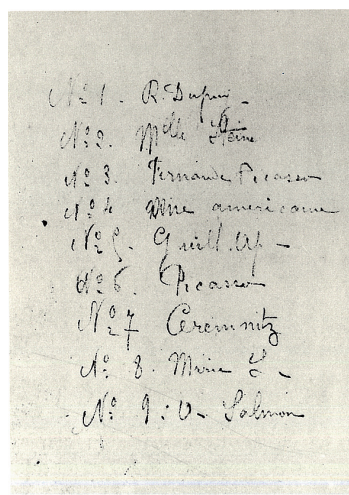 No 1. R. Dupuy -
No 2. Melle Steine
No 3. Fernande Picasso
No 4 une americaine
No 5. Guill. Ap -
No 6. Picasso
No 7 Ceremnitz
No 8. Marie L -
No 9: - Salmon